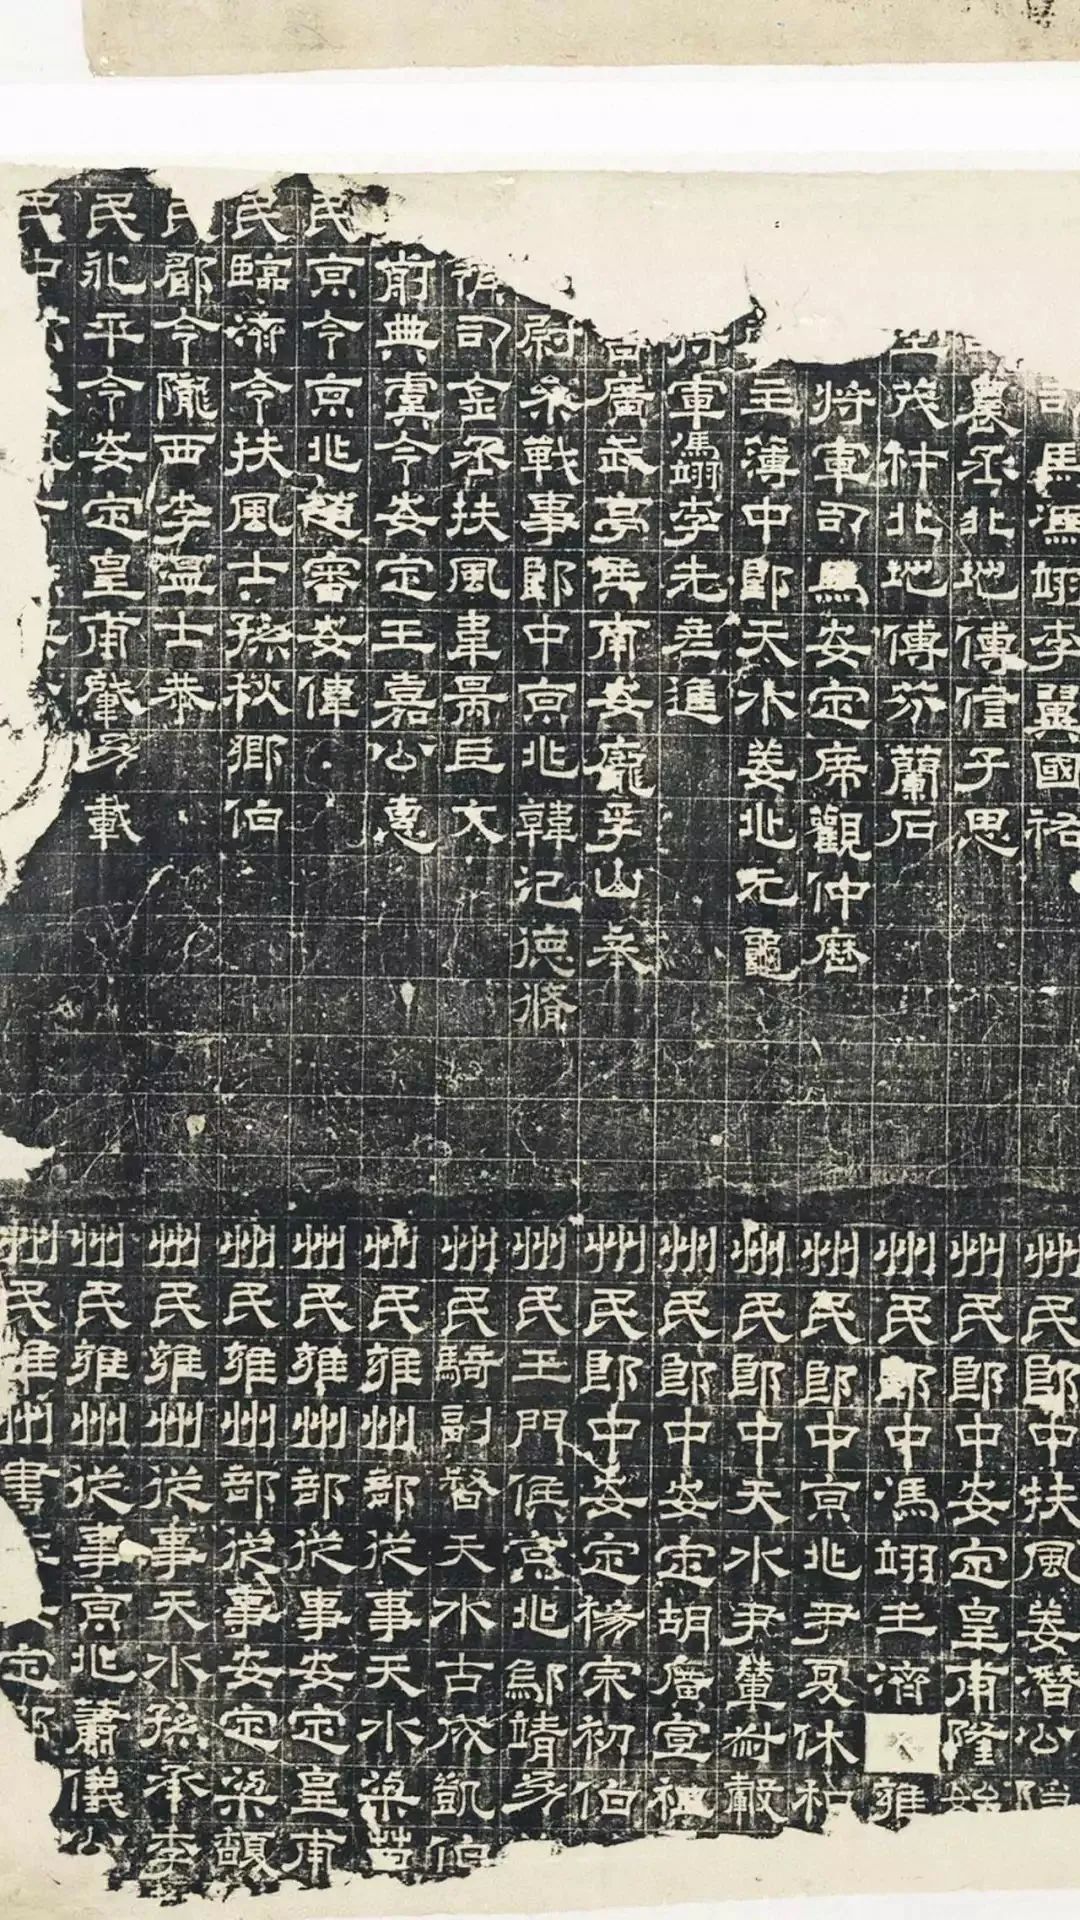 馬馮翊李翼國祐
農丞北地傅信子思
茂什北地傅芬蘭石
將軍司馬安定席觀仲歷
主薄中郎天水姜兆元龜
將軍馮翊李先彥進
廣武亭侯南安龐孚山奉
尉參戰事郎中京兆韓汜德脩
司金丞扶風韋昺巨文
前典虞令安定王嘉公惠
民京令京兆趙審安偉
民臨濟令扶風士孫秋鄉伯
民鄜令隴西李溫士恭
民永平令安定皇甫肇幼載
民中郎
州民郎中扶風姜潛公
州民郎中安定皇甫隆始
州民郎中馮翊王濟雍
州民郎中京兆尹夏休和
州民郎中天水尹輦叔轂
州民郎中安定胡廣宣祖
州民郎中安定楊宗初伯
州民玉門侯京兆鄔靖幼
州民騎副督天水古成凱伯
州民雍州部從事天水梁苕
州民雍州部從事安定皇甫
州民雍州部從事安定梁馥
州民雍州從事天水孫承李
州民雍州從事京兆蕭儀公
州民雍州書